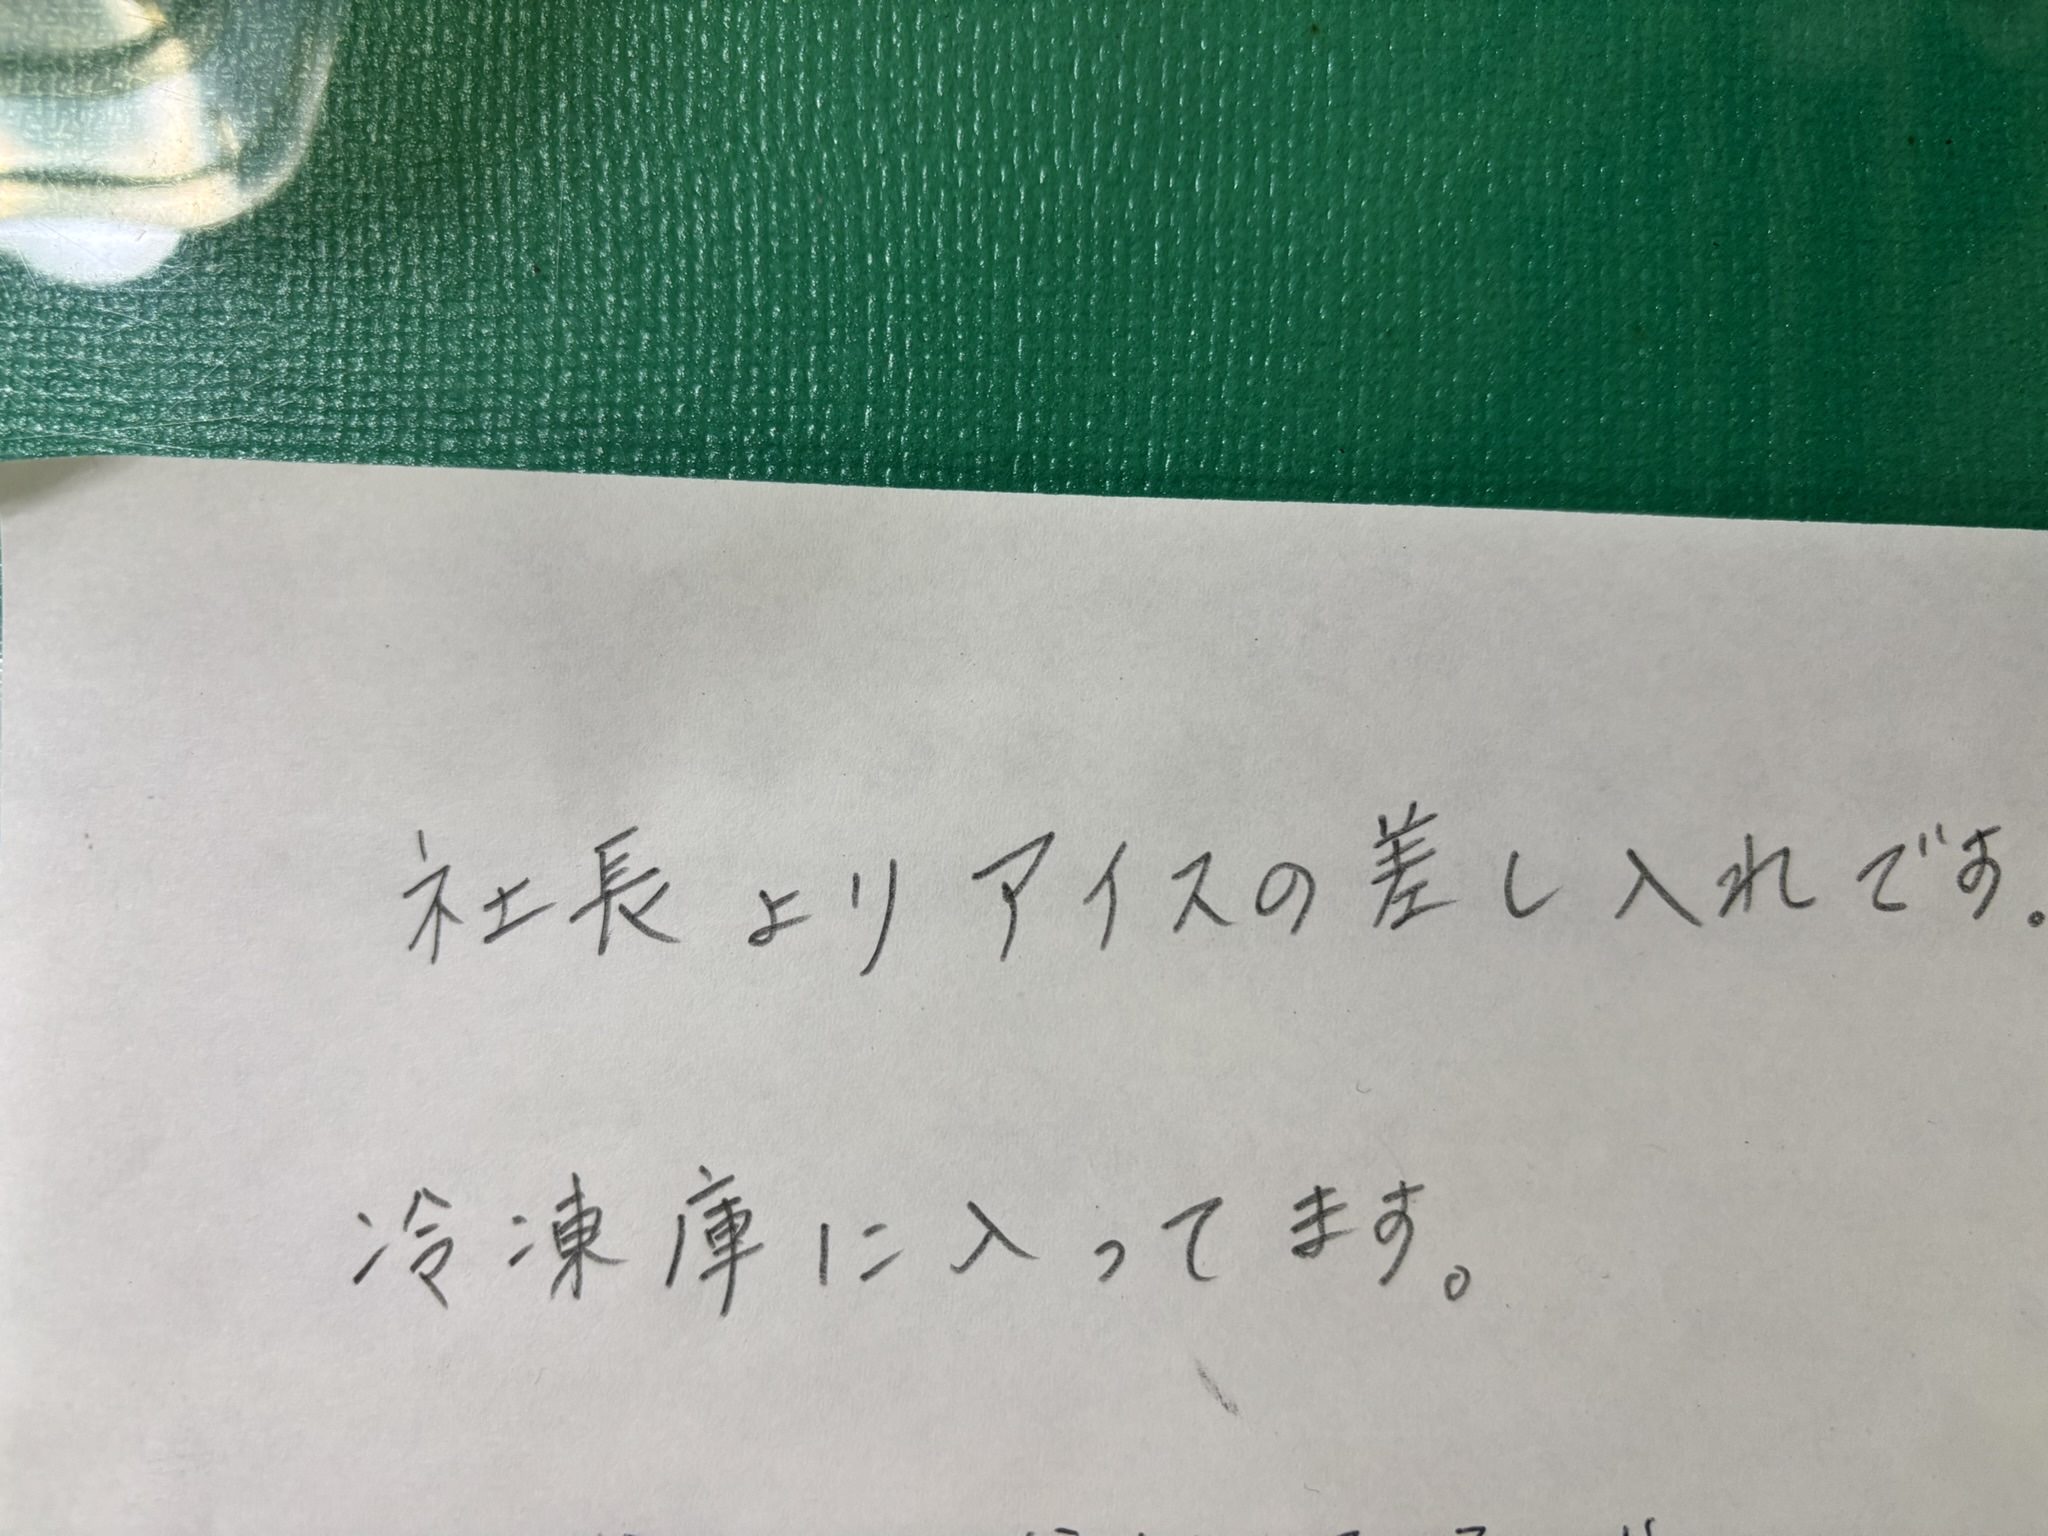 社長よりアイスの差し入れです。
冷凍庫に入ってます。